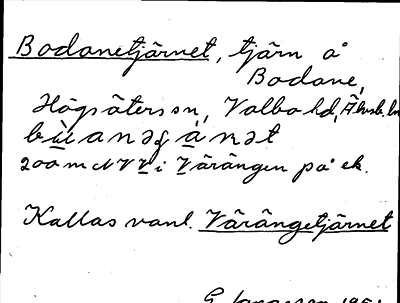 Bodanetjärnet, tjärn å
Bodane,
Högsäters sn, Valbo hd, Älvsb. ln
200 m NV i Värängen på ek.
Kallas vanl. Värängetjärnet